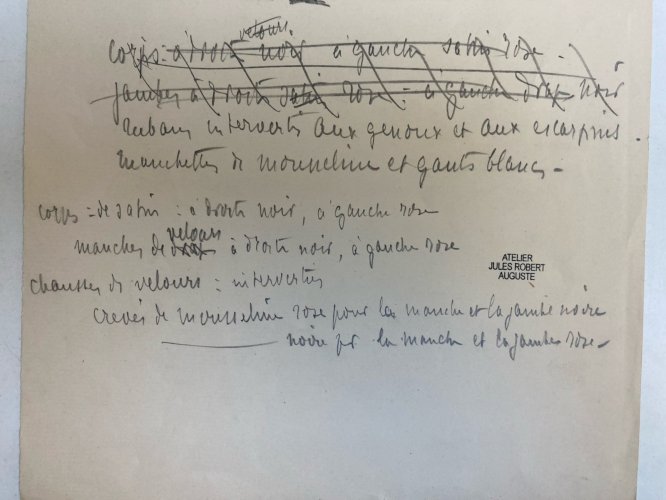 velours
corps : à droite noir à gauche satin rose -
jambes à droite satin rose - à gauche drap noir
Rubans intervertis aux genoux et aux escarpins.
Manchettes de mousseline et gants blancs -
corps = de satin : à droite noir, à gauche rose
velours
manches de drap à droite noir, à gauche rose
ATELIER
JULES ROBERT
AUGUSTE
chausses de velours : interverties
crevés de mousseline rose pour la manche et la jambe noire
noire pr la manche et la jambe rose -